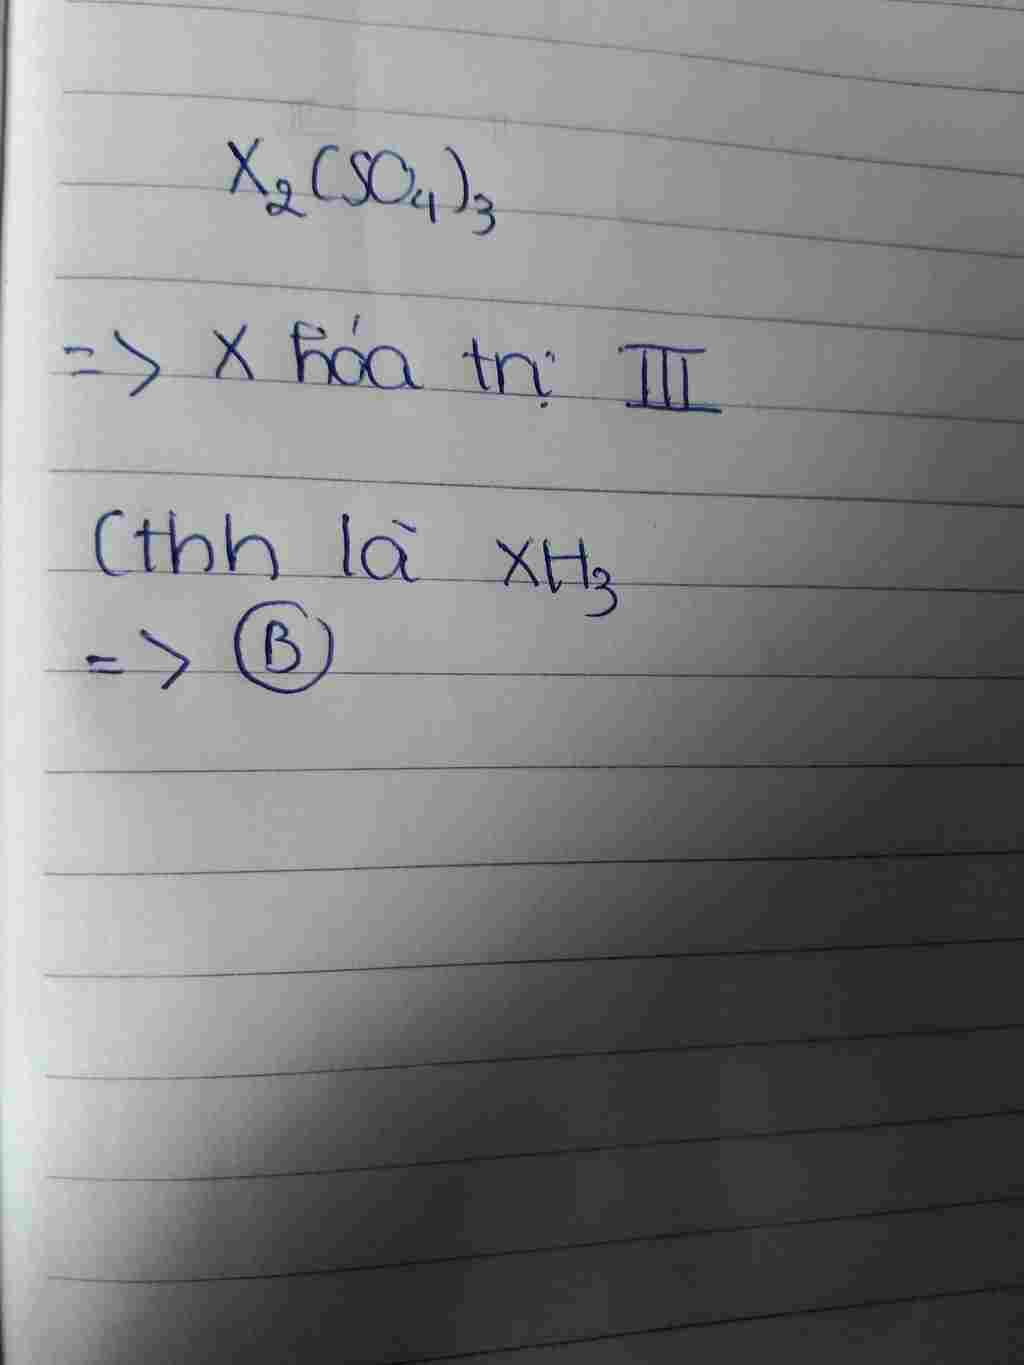 X₂(SO₄)₃
=> X hóa trị III
Cthh là XH₃
=> B